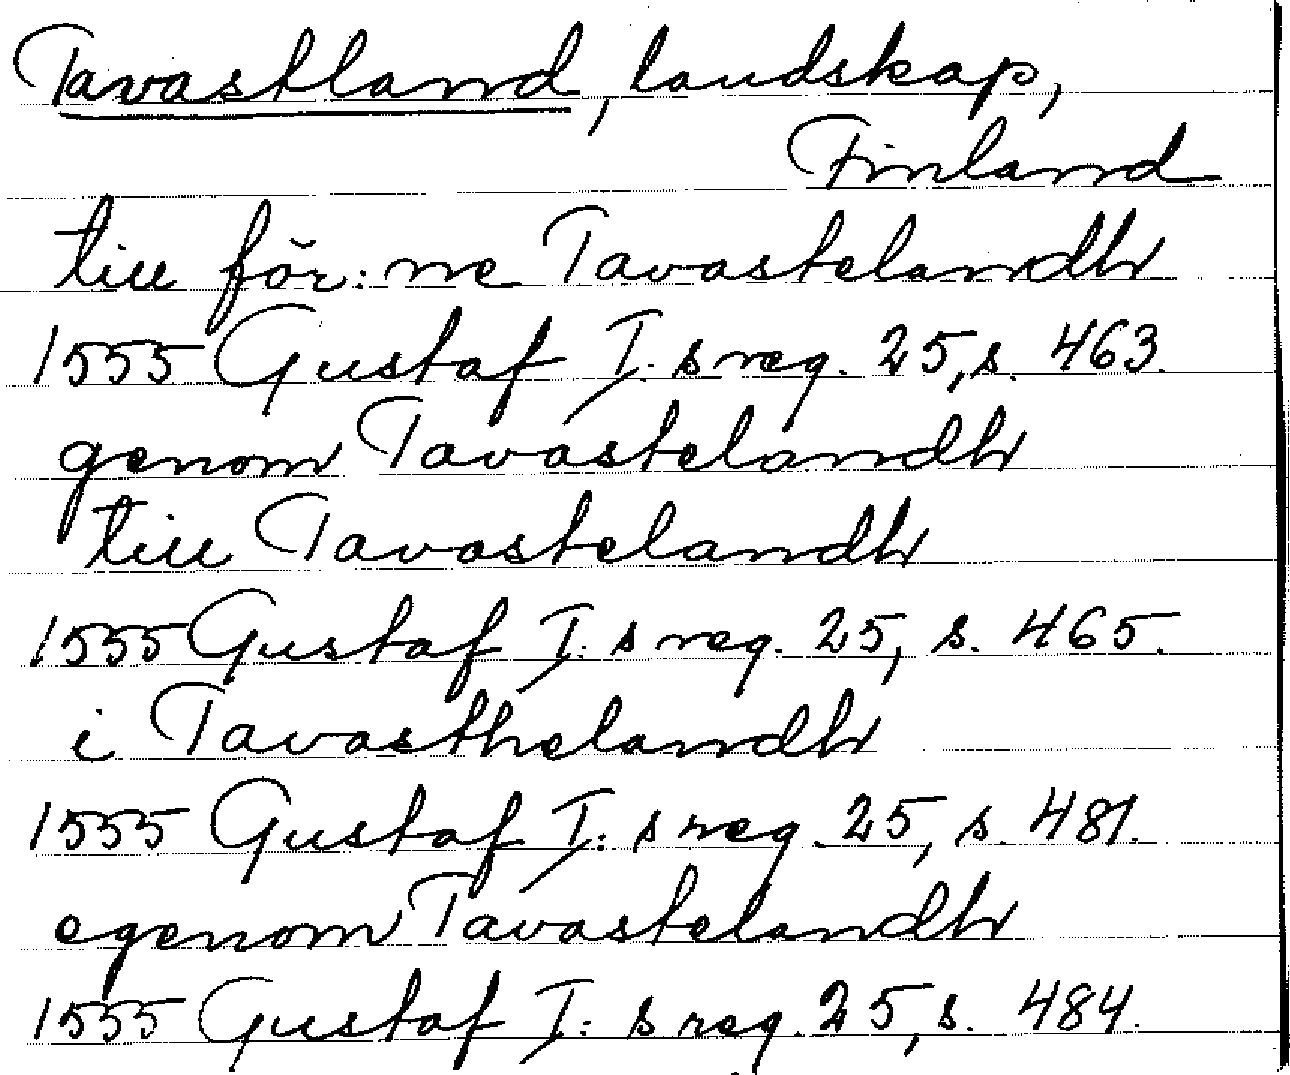 Tavastland, landskap,
Finland
till för:ne Tavastelandh
1555 Gustaf I:s reg. 25, s. 463.
genom Tavastelandh
till Tavastelandh
1555 Gustaf I:s reg. 25, s. 465.
i Tavasthelandh
1555 Gustaf I:s reg. 25, s. 481.
egenom Tavastelandh
1555 Gustaf I:s reg. 25, s. 484.